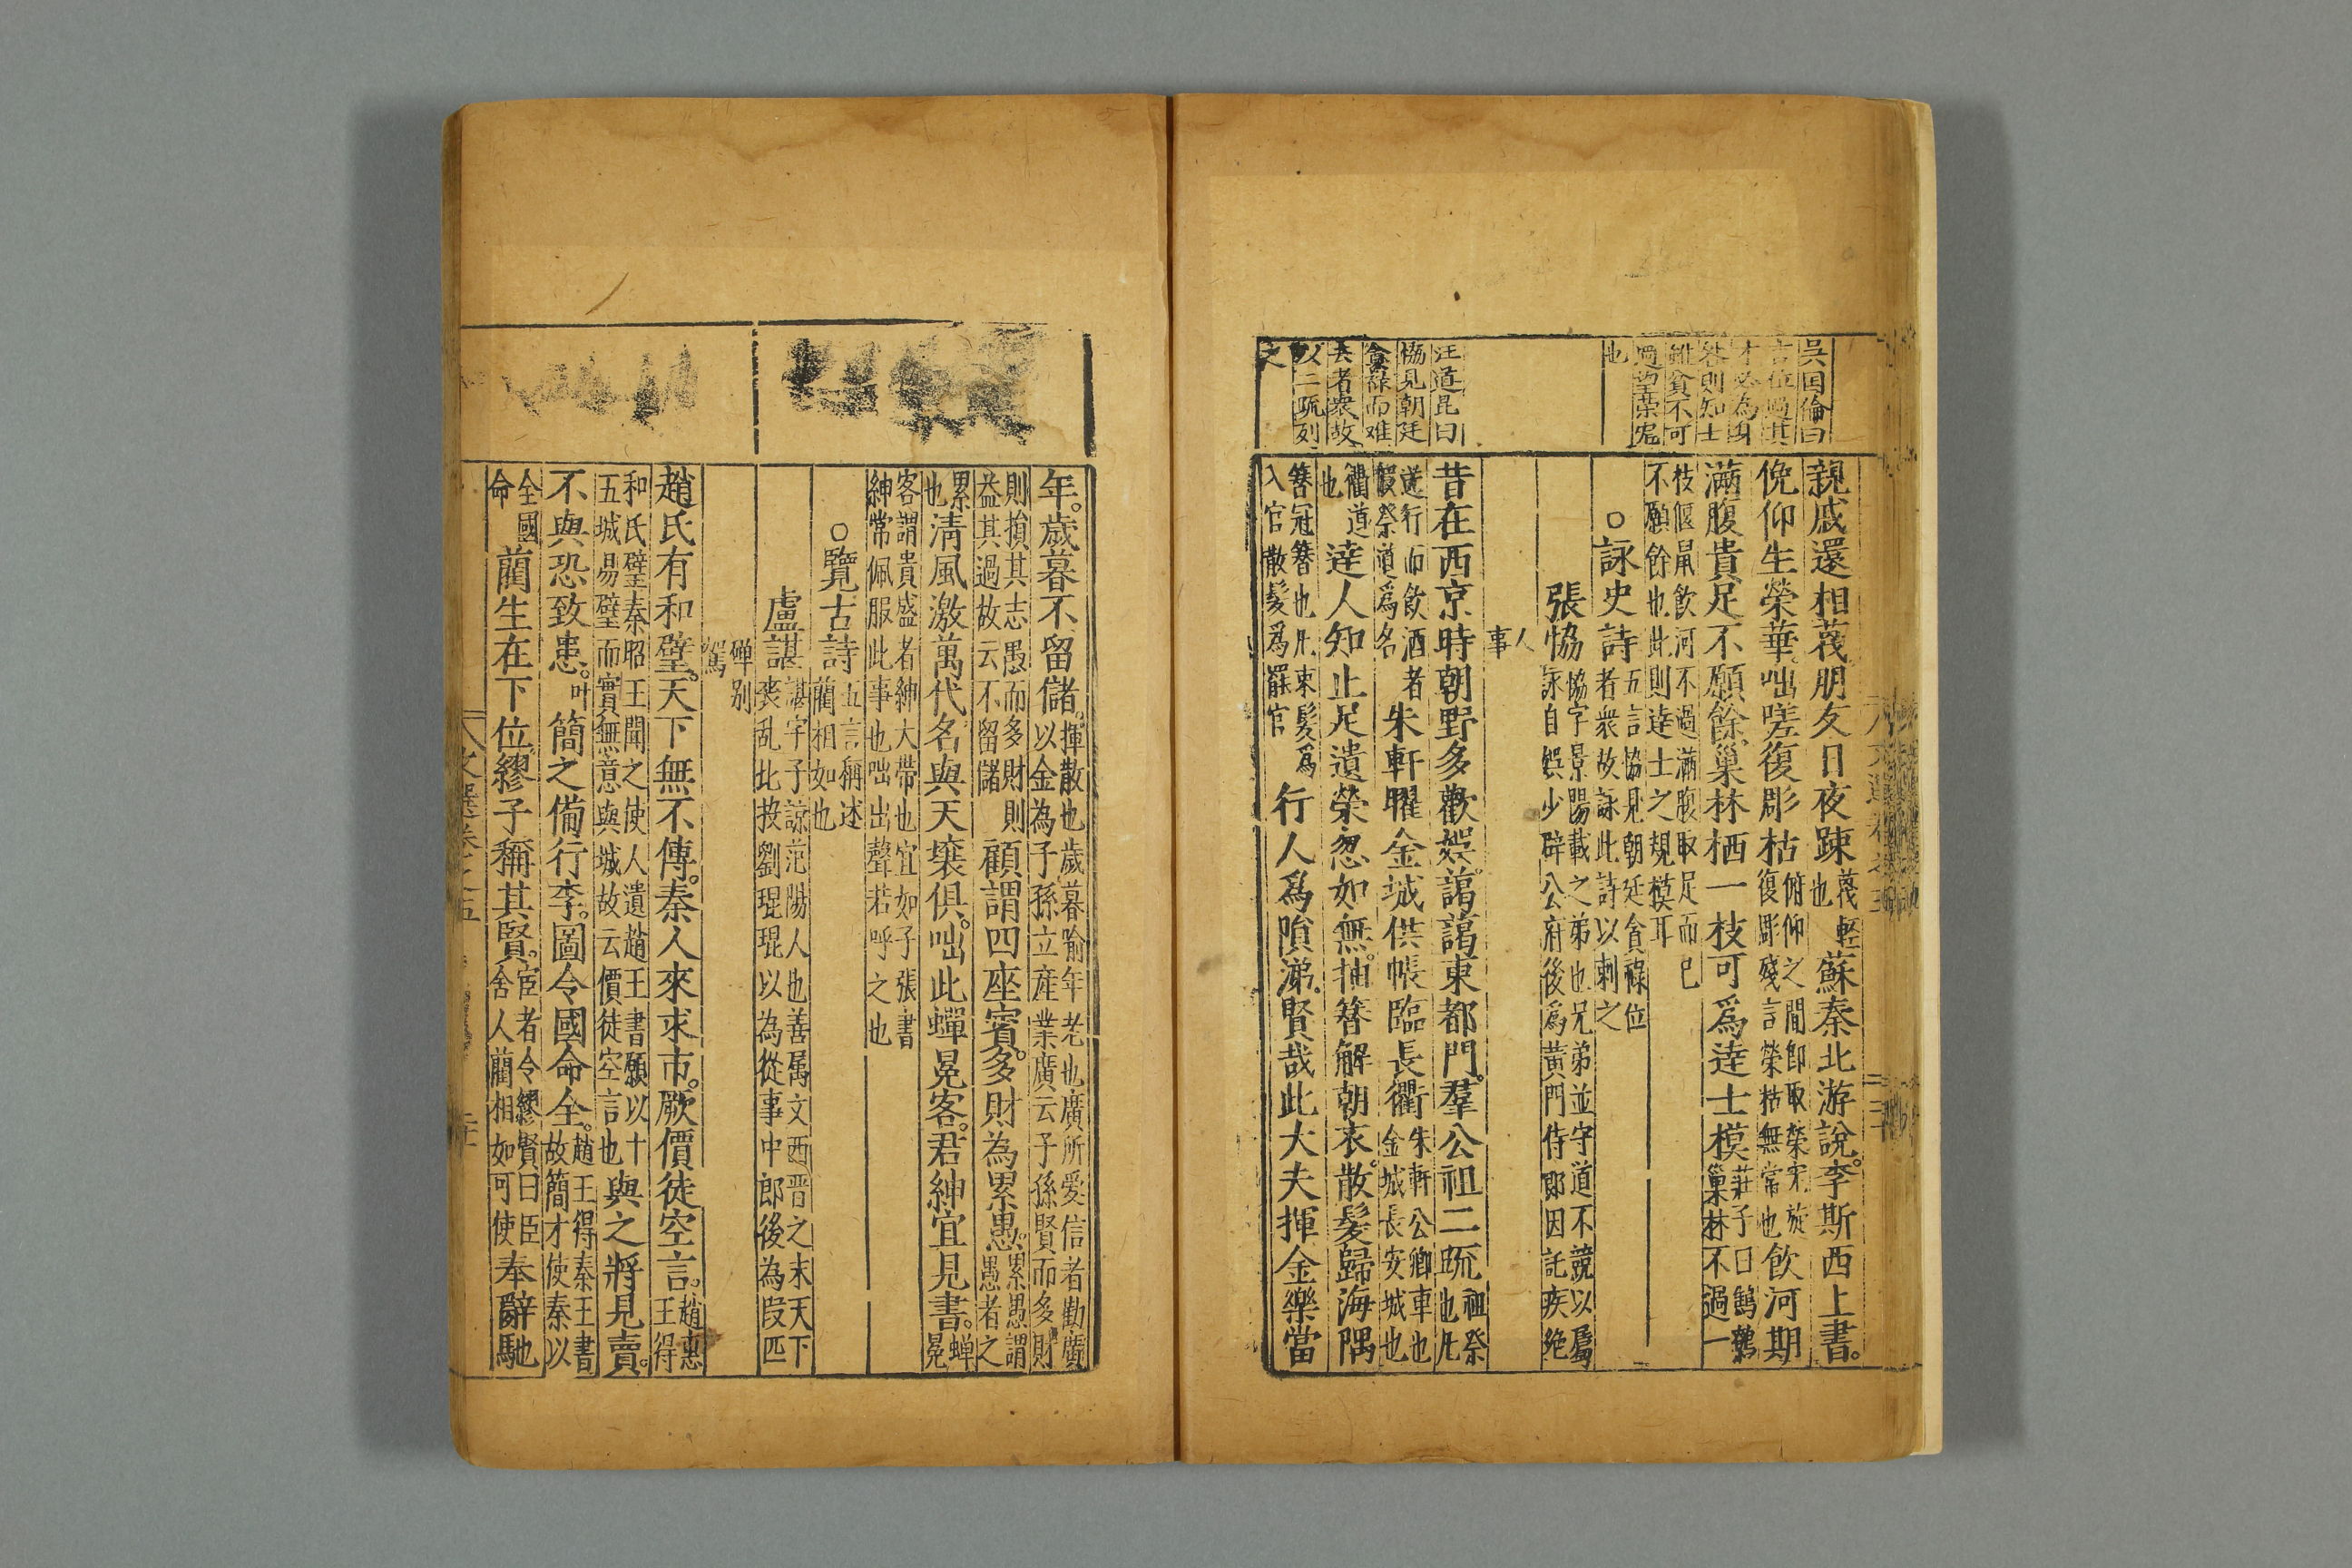 吳国倫曰
古位過其
才必為身
咎則知士
雖貧不可
過望榮寵
也
汪道昆曰
協見朝廷
貪祿而难
去者衆故
以二疏列
之
親戚還相蔑朋友日夜踈蔑輕也蘇秦北游說。李斯西上書。
俛仰生榮華咄嗟復彫枯俯仰之間卽取榮宋旋復彫殘言榮枯無常也飲河期
滿腹貴足不願餘巢林栖一枝可爲逹士模莊子曰鷦鷯巢林不過一
枝偃鼠飲河不過滿腹取足而已不願餘也此則逹士之規模耳
○詠史詩五言協見朝廷貪祿位者衆故詠此詩以刺之
張協協字景陽載之弟也兄弟並守道不競以屬詠自娛少辟公府後爲黃門侍郎因託疾絶
人事
昔在西京時朝野多歡娛。藹藹東都門。羣公祖二疏祖祭也凡
遠行而飲酒者假祭道爲名朱軒曜金城供帳臨長衢朱軒公卿車也金城長安城也
衢道也逹人知止足遺榮忽如無。抽簪解朝衣。散髮歸海隅
簪冠簪也凡束髮爲入官散髮爲罷官行人爲隕涕。賢哉此大夫揮金樂當
年。歲暮不留儲。揮散也歲暮喻年老也廣所愛信者勸廣以金為子孫立産業廣云子孫賢而多財
則損其志愚而多財則益其過故云不留儲顧謂四座賓。多財為累愚。累愚謂愚者之
累也清風激萬代名與天壤俱。咄此蟬冕客。君紳宜見書。蟬冕
客謂貴盛者紳大帶也宜如子張書紳常佩服此事也咄出聲若呼之也
○覽古詩五言稱述藺相如也
盧諶諶字子諒范陽人也善属文西晋之末天下喪乱北投劉琨琨以為從事中郎後為段匹
磾別駕
趙氏有和璧。天下無不傳。秦人來求市。厥價徒空言。趙惠王得
和氏璧秦昭王聞之使人遺趙王書願以十五城易璧而實無意與城故云價徒空言也與之將見賣。
不與恐致患。叶簡之備行李。圖令國命全。趙王得秦王書故簡才使秦以
全國命藺生在下位繆子稱其賢。宦者令繆賢曰臣舍人藺相如可使奉辭馳
文選卷之五